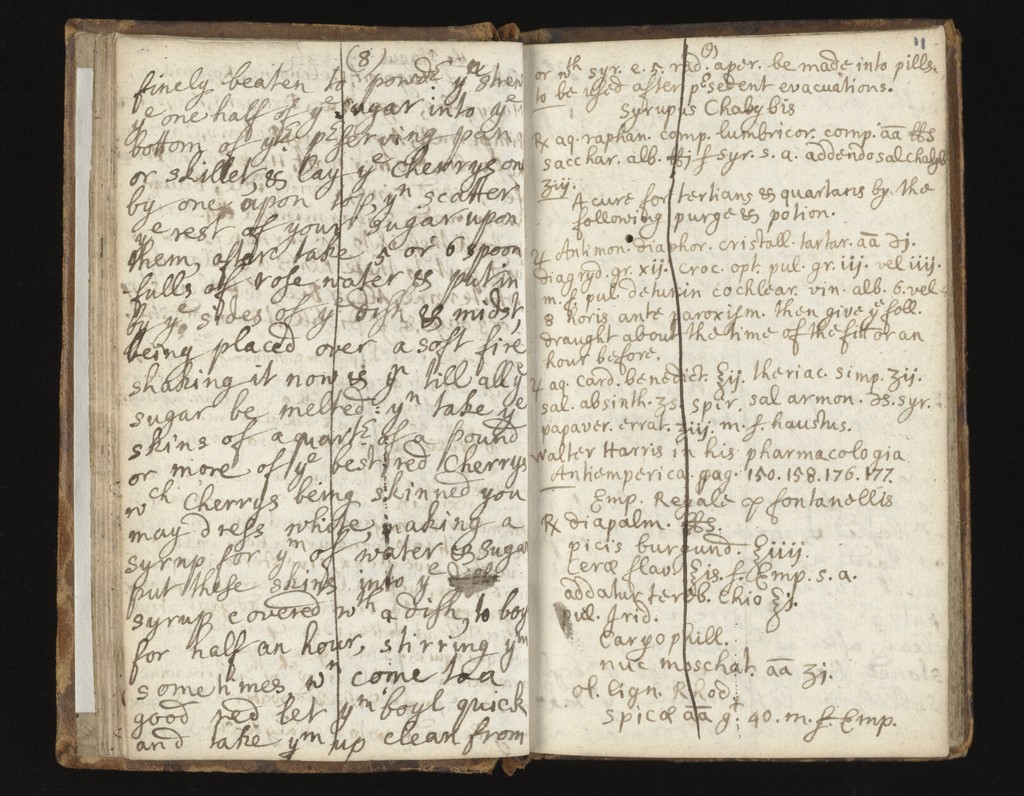 (8)
finely beaten to powdr yn strew
ye one half of ye sugar into ye
bottom of ye pserving pan
or skillet, & lay ye Cherrys one
by one upon top yn scatter
ye rest of your sugar upon
them, after take 5 or 6 spoon
fulls of rose water & put in
by ye sides of ye dish & midst,
being placed over a soft fire
shaking it now & yn till all ye
sugar be melted: yn take ye
skins of a quartr of a pound
or more of ye best red Cherrys
wch Cherrys being skinned you
may dress white, making a
syrup for ym of water & sugar
put these skins into ye
syrup covered wth a dish, to boyl
for half an hour, stirring ym
sometimes, wn come to a
good red let ym boyl quick
and take ym up clean from
(9)
11
or wth syr. e. 5. rad. aper. be made into pills.
to be used after psedent evacuations.
Syrupus Chalybis
℞ aq. raphan. comp. lumbricor. comp. āā ℔s
sacchar. alb. ℔j f syr. s. a. addendo sal chalyb
ʒiij.
A cure for tertians & quartans by the
following purge & potion.
♃ Antimon. diaphor. cristall. tartar. āā ℈j.
diagryd. gr. xij. croc. opt. pul. gr. iij. vel iiij.
m. f. pul. detur in cochlear. vin. alb. 6. vel
8 horis ante paroxism. then give ye foll.
draught about the time of the fitt or an
hour before.
♃ aq. card. benedict. ℥ij. theriac. simp. ʒij.
sal. absinth. ʒs. spir. sal armon. ℈s. syr.
papaver. errat. ʒiij. m. f. haustus.
Walter Harris in his pharmacologia
Antiemperica. pag. 150. 158. 176. 177.
Emp. Regale p fontanellis
℞ diapalm. ℔s.
picis burgund. ℥iiij.
Ceræ flav. ℥is. f. Emp. s. a.
addatur tereb. Chio ℥j.
pul. Irid.
Caryophill.
nuc moschat. āā ʒj.
ol. lign. Rhod
spicæ āā gt 40. m. f. Emp.